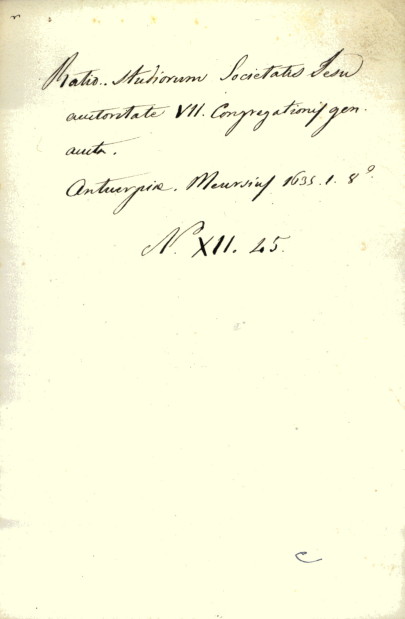 Ratio. Studiorum Societatis Jesu
auctoritate VII. Congregationis gen.
aucta.
Antuerpiæ. Meursius 1635. 1. 8º.
Nº XII. 45.
c